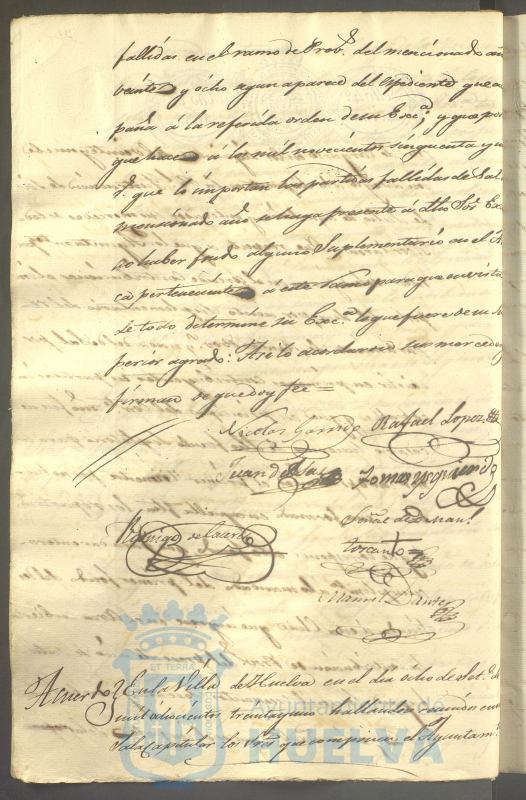 fallidas en el ramo de Prob.s del mencionado año
veinte y ocho segun aparece del espediente que
paña á la referida orden de su Exc.a y que por
que hace á los mil novecientos cinquenta y un
r.s que importan las partidas fallidas de Sal
mencionado año se haga presente á dho Sor. Ex
no haber fondo alguno Suplementario en el
ca perteneciente á este ramo para que en vista
de todo determine su Exc.a lo que fuere de su su
perior agrado: Asi lo acordaron sus mercedes y
firman de que doy fee =
Nicolas Garrido Rafael Lopez
Juan de
Rodrigo de la Cerda
Señal de D. Man.l
Toscano
Manuel
Acuerdo } En la Villa de Huelva en el dia ocho de Set.e de
mil ochocientos treinta y uno hallandose reunidos en su
Sala Capitular los Sres que componen el Ayuntam.to
ET TERRA
Ayuntamiento de
HUELVA